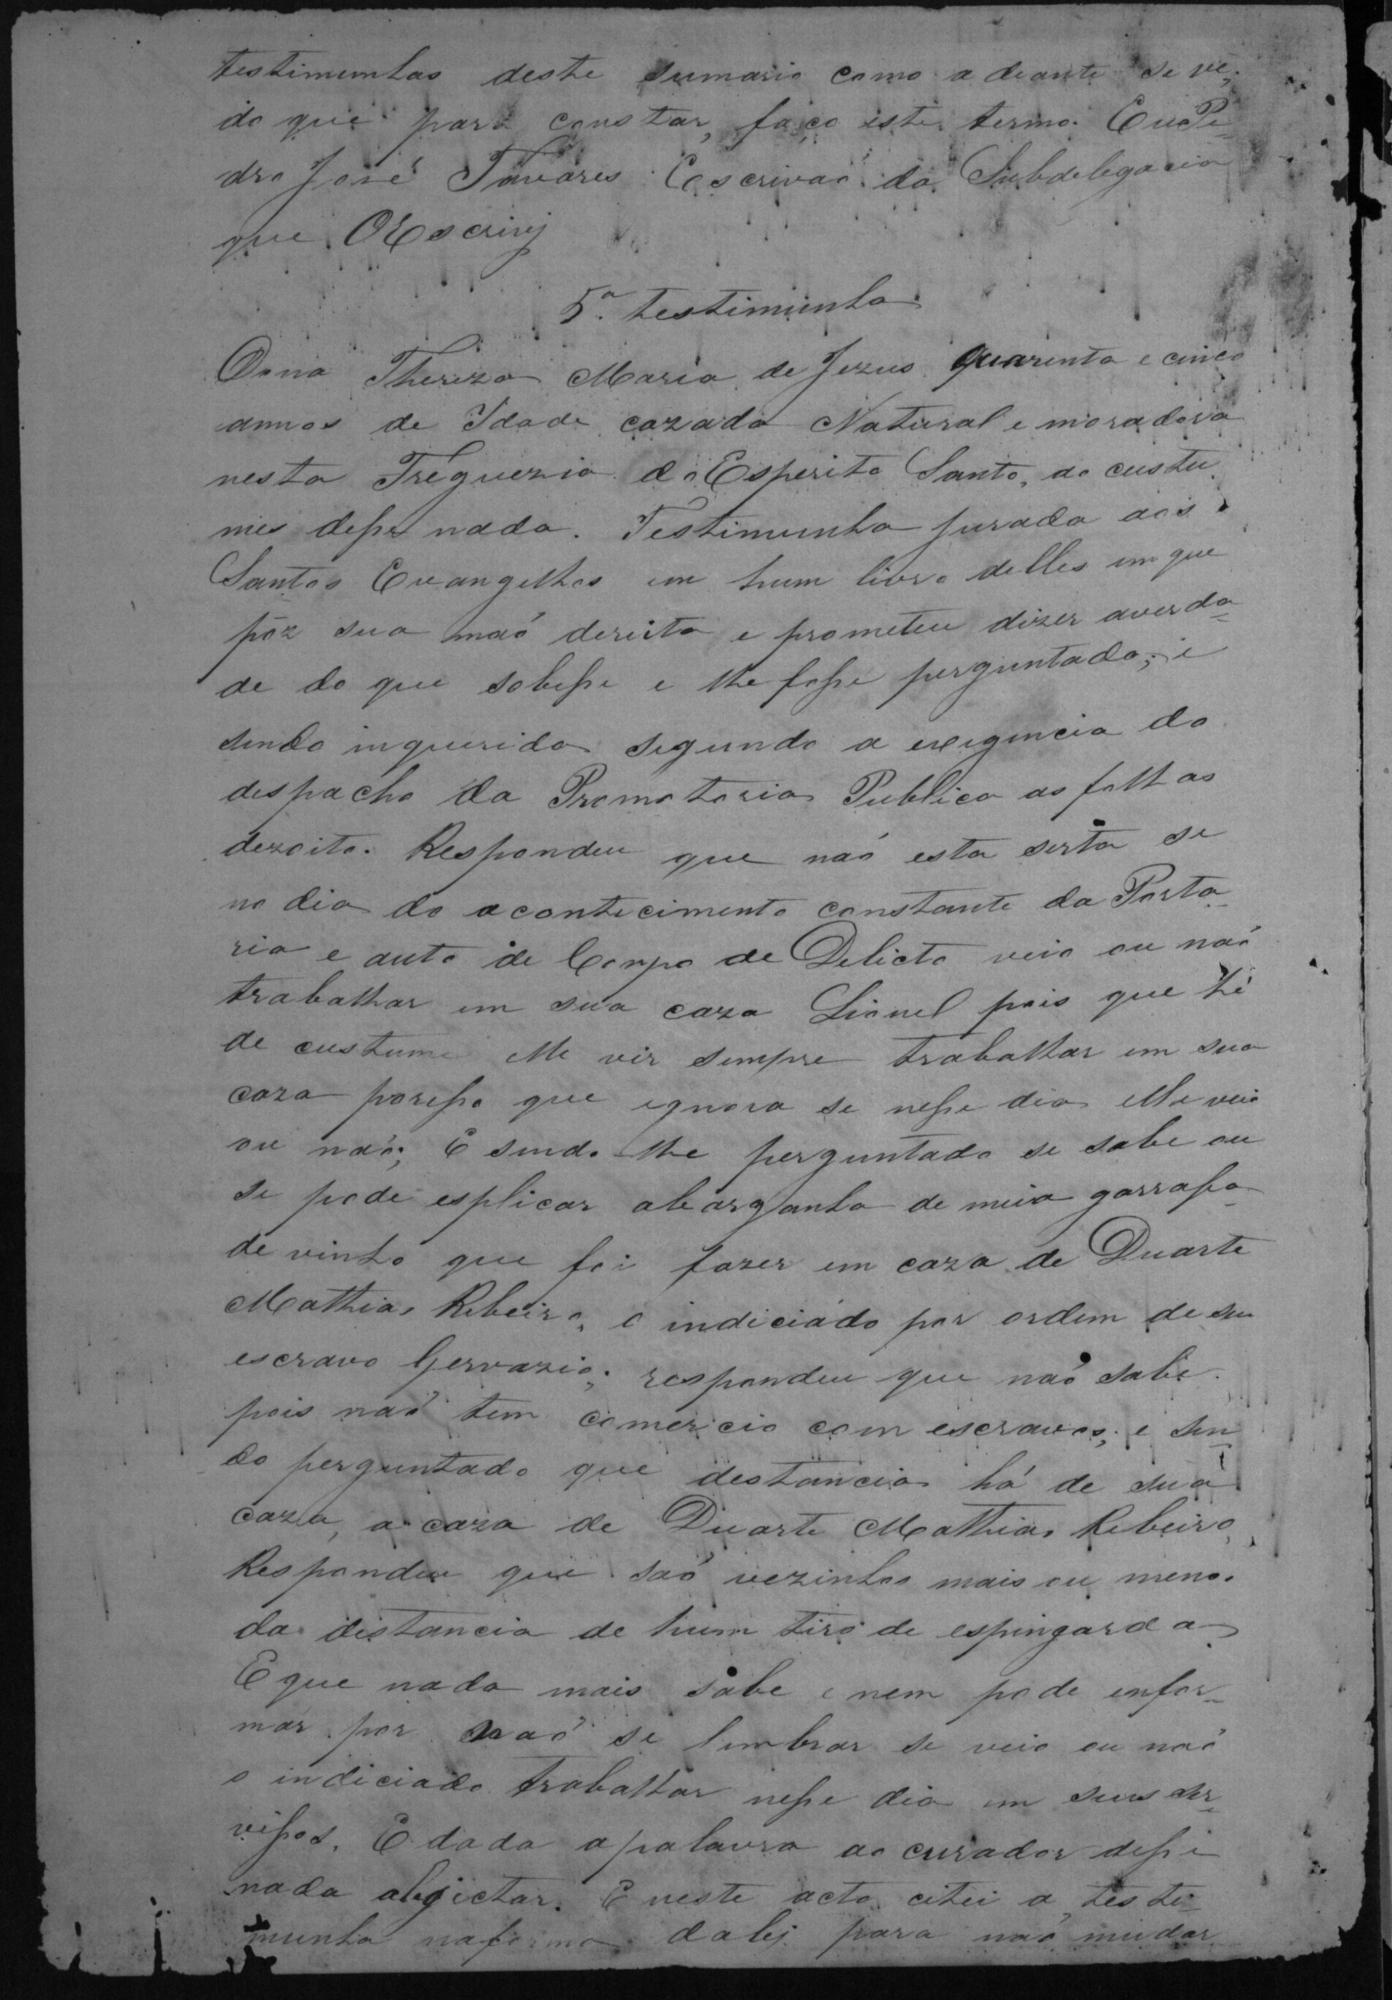 testimunhas deste sumario como adeante se ve,
do que para constar, faço este termo. Eu Pe-
dro José Tavares Escrivaõ da Subdelegacia
que OEscrivj
5.ª testimunha
Dona Thereza Maria de Jezus quarenta e cinco
annos de Idade cazada Natural e moradora
nesta Freguezia do Esperito Santo, ao custu
mes disse nada. Testimunha jurada aos
Santos Evangelhos em hum livro delles em que
pôz sua maõ dereita e prometeu dizer averda-
de do que sobesse e lhe fosse perguntado; e
sendo inquerida segundo a exigencia do
despacho da Promotoria Publica as folhas
dezoito. Respondeu que naõ esta serta se
no dia do acontecimento constante da Porta-
ria e auto de Corpo de Delicto veio ou naõ
trabalhar em sua caza Lionel pois que hé
de custume elle vir sempre trabalhar em sua
caza porisso que ignora se nesse dia elle veio
ou naõ; E sendo-lhe perguntado se sabe ou
se pode esplicar abarganha de meia garrafa
de vinho que foi fazer em caza de Duarte
Mathias Ribeiro, o indiciado por ordem de seu
escravo Gervazio; respondeu que naõ sabe
pois naõ tem comercio com escravos; e sen-
do perguntado que destancia há de sua
caza, a caza de Duarte Mathias Ribeiro,
Respondeu que saõ vezinhos mais ou menos
da distancia de hum tiro de espingarda
E que nada mais sabe e nem pode enfor-
mar por naõ se lembrar se veio ou naõ
o indiciado trabalhar nesse dia em seus ser-
vissos. E dada apalavra ao curador disse
nada abjectar. E neste acto citei a teste-
munha naforma dalej para naõ mudar